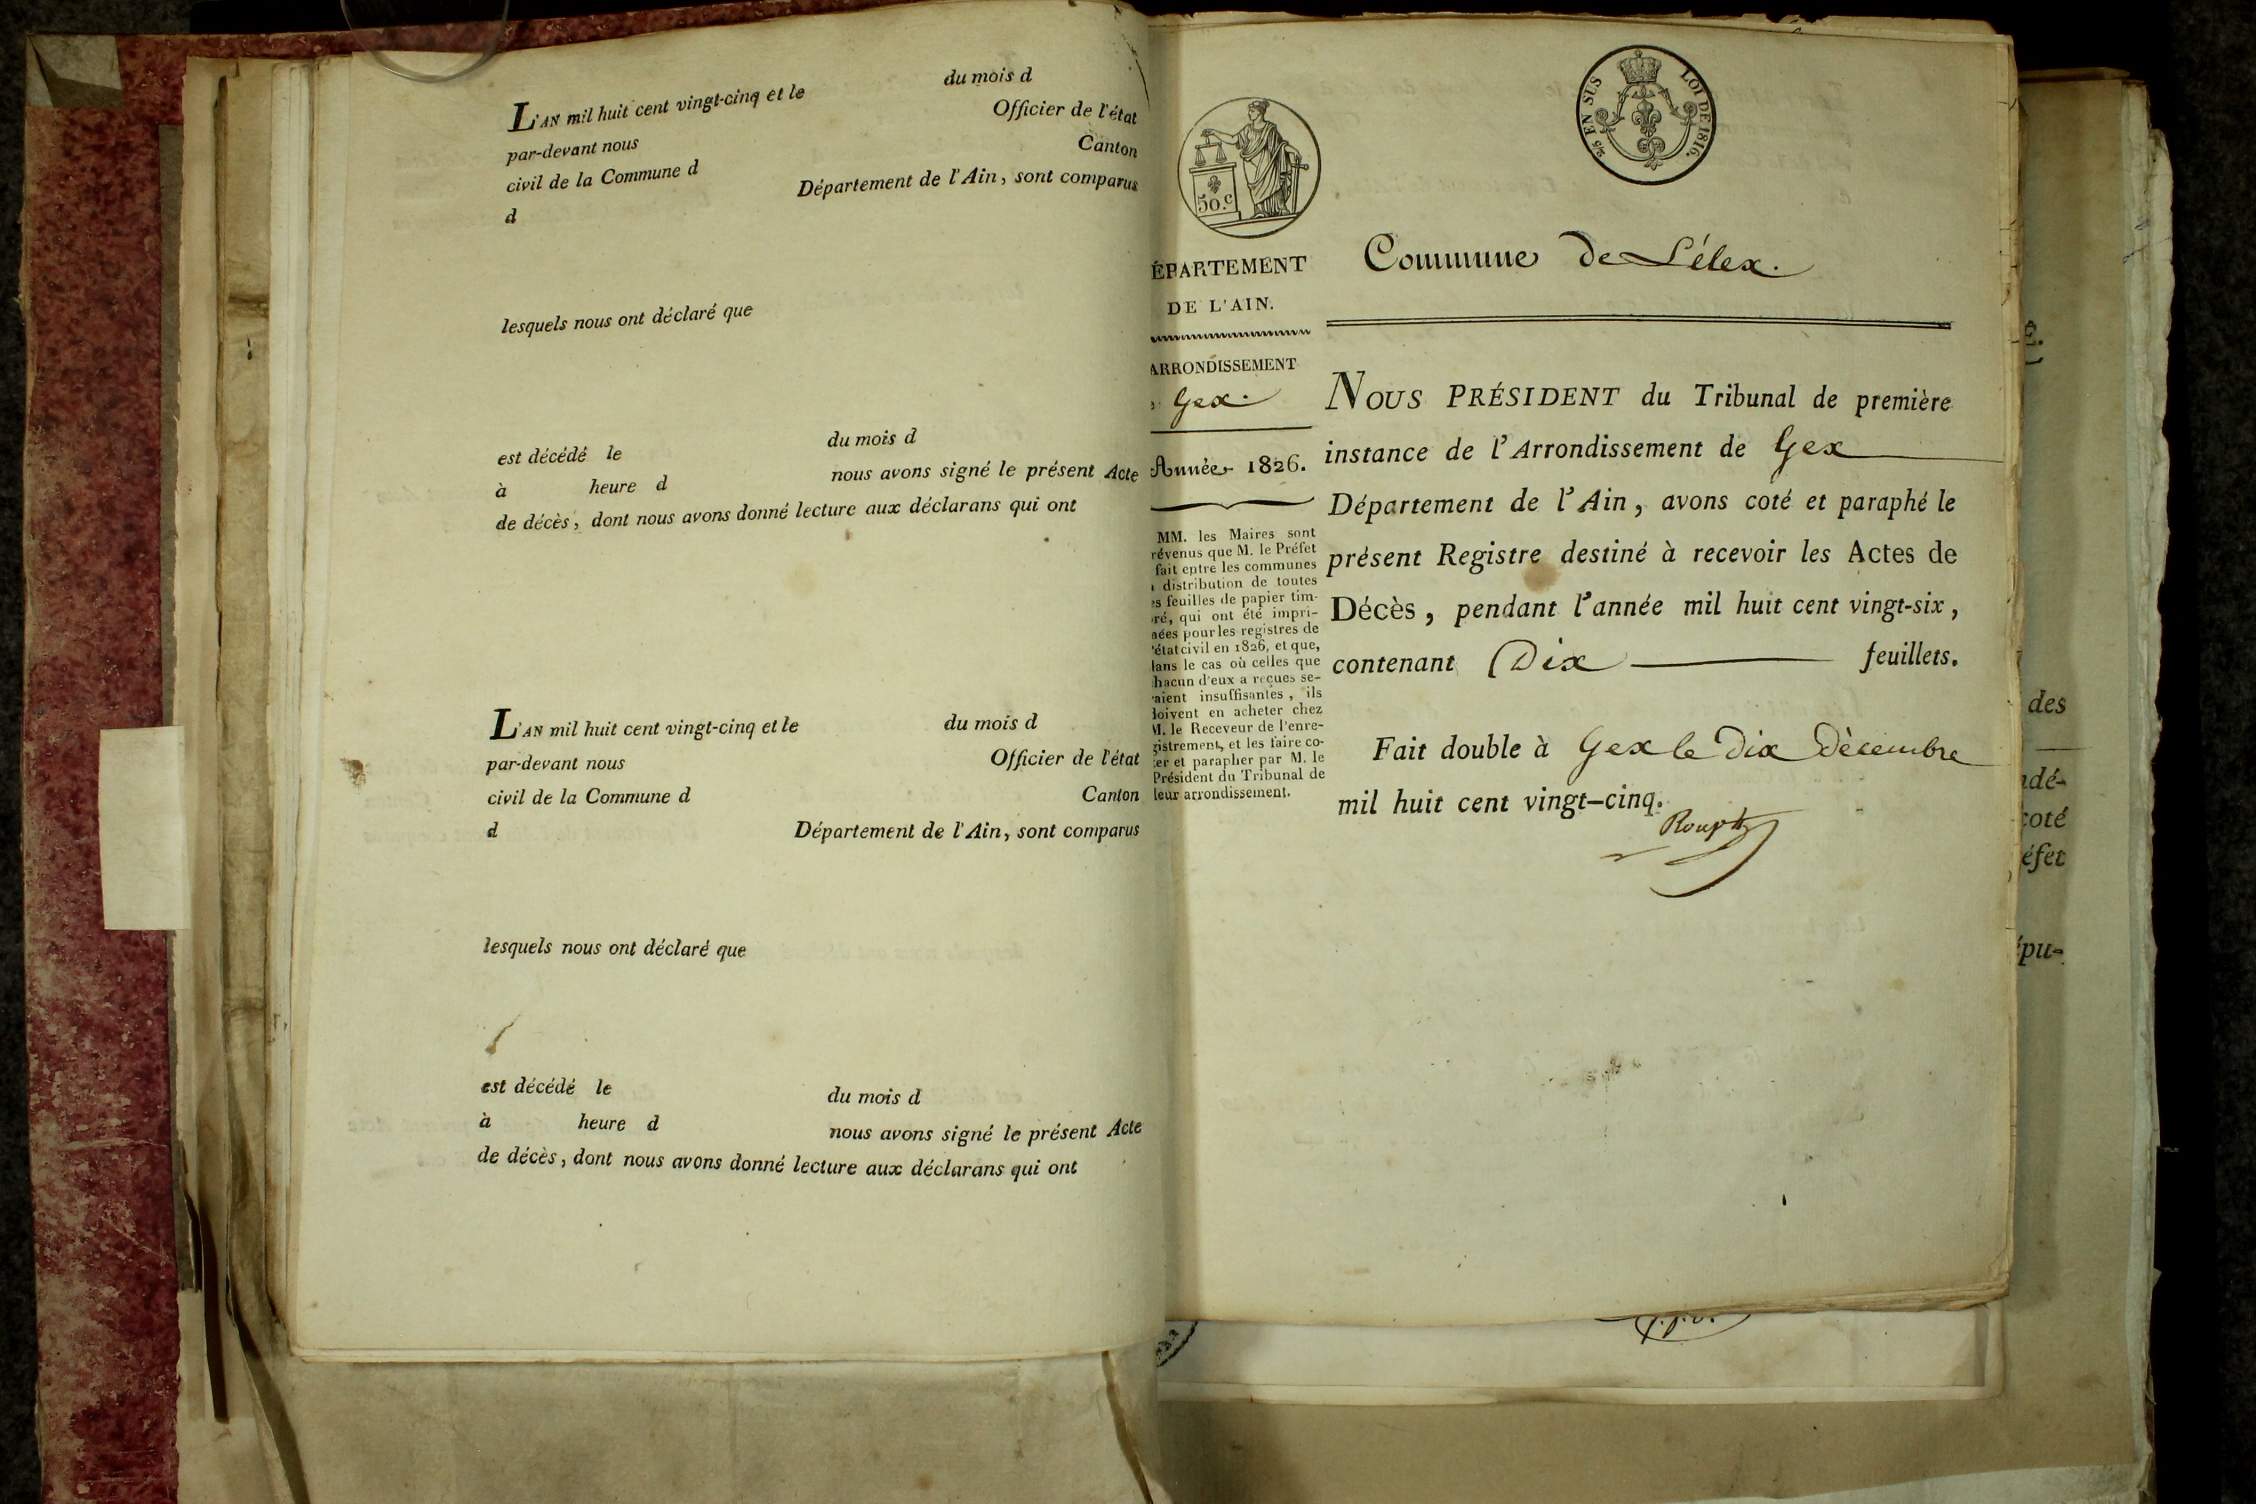 L'AN mil huit cent vingt-cinq et le du mois d
par-devant nous Officier de l'état
civil de la Commune d Canton
d Département de l'Ain, sont comparus
lesquels nous ont déclaré que
est décédé le du mois d
à heure d nous avons signé le présent Acte
de décès, dont nous avons donné lecture aux déclarans qui ont
L'AN mil huit cent vingt-cinq et le du mois d
par-devant nous Officier de l'état
civil de la Commune d Canton
d Département de l'Ain, sont comparus
lesquels nous ont déclaré que
est décédé le du mois d
à heure d nous avons signé le présent Acte
de décès, dont nous avons donné lecture aux déclarans qui ont
50.c
2/5 EN SUS LOI DE 1816.
ÉPARTEMENT
DE L'AIN.
ARRONDISSEMENT
Gex.
Année 1826.
MM. les Maires sont
révenus que M. le Préfet
fait entre les communes
distribution de toutes
es feuilles de papier tim-
ré, qui ont été impri-
mées pour les registres de
l'état civil en 1826, et que,
dans le cas où celles que
chacun d'eux a reçues se-
raient insuffisantes, ils
doivent en acheter chez
M. le Receveur de l'enre-
gistrement, et les faire co-
ter et parapher par M. le
Président du Tribunal de
leur arrondissement.
Commune de Lélex.
NOUS PRÉSIDENT du Tribunal de première
instance de l'Arrondissement de Gex
Département de l'Ain, avons coté et paraphé le
présent Registre destiné à recevoir les Actes de
Décès, pendant l'année mil huit cent vingt-six,
contenant Dix feuillets.
Fait double à Gex le Dix Décembre
mil huit cent vingt-cinq.
E.
des
ndé-
coté
éfet
épu-